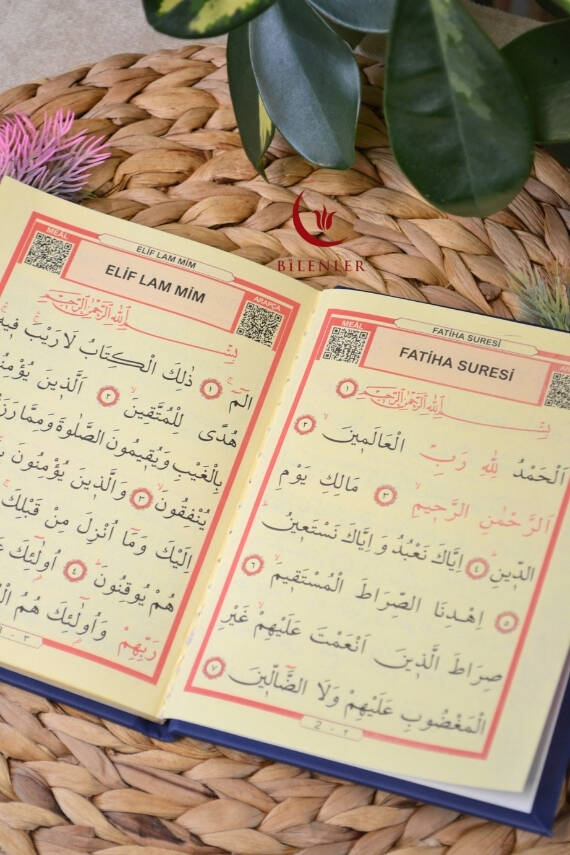 BİLENLER
FATİHA SURESİ
MEAL
FATİHA SURESİ
بِسْمِ اللّٰهِ الرَّحْمٰنِ الرَّحِيمِ ١
اَلْحَمْدُ لِلّٰهِ رَبِّ الْعَالَمِينَ ٢
اَلرَّحْمٰنِ الرَّحِيمِ ٣ مَالِكِ يَوْمِ
الدِّينِ ٤ اِيَّاكَ نَعْبُدُ وَ اِيَّاكَ نَسْتَعِينُ
٥ اِهْدِنَا الصِّرَاطَ الْمُسْتَقِيمَ ٦
صِرَاطَ الَّذِينَ اَنْعَمْتَ عَلَيْهِمْ غَيْرِ
الْمَغْضُوبِ عَلَيْهِمْ وَلَا الضَّالِّينَ ٧
2 - ٢
ELİF LAM MİM
MEAL
ELİF LAM MİM
ARAPÇA
بِسْمِ اللّٰهِ الرَّحْمٰنِ الرَّحِيمِ
الٓمٓ ١ ذٰلِكَ الْكِتَابُ لَا رَيْبَ فِيهِ
هُدًى لِلْمُتَّقِينَ ٢ اَلَّذِينَ
بِالْغَيْبِ وَيُقِيمُونَ الصَّلٰوةَ وَمِمَّا
يُنْفِقُونَ ٣ وَالَّذِينَ يُؤْمِنُونَ
اِلَيْكَ وَمَا اُنْزِلَ مِنْ قَبْلِكَ
هُمْ يُوقِنُونَ ٤ اُولٰٓئِكَ
رَبِّهِمْ وَاُولٰٓئِكَ هُمُ
- ٣